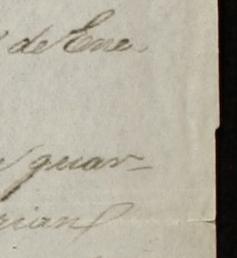 de Ene.
guar-
rian